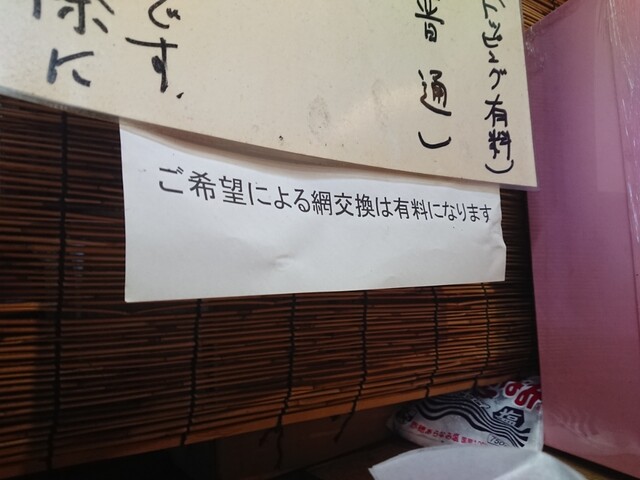 ッピング有料)
普通)
です。
際に
ご希望による網交換は有料になります
塩